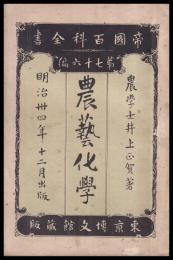 帝國百科全書
第七十六編
農學士井上正賀著
農藝化學
明治卅四年十二月出版
東京博文館蔵版